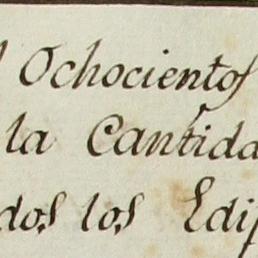 l Ochocientos
la Cantida
dos los Edif